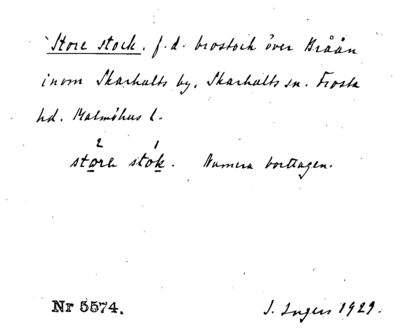 Store stock. f.d. brostock över Bråån
inom Skarhults by, Skarhults sn. Frosta
hd. Malmöhus l.
2 1
store stok. Numera borttagen.
Nr 5574. I. Ingers 1929.